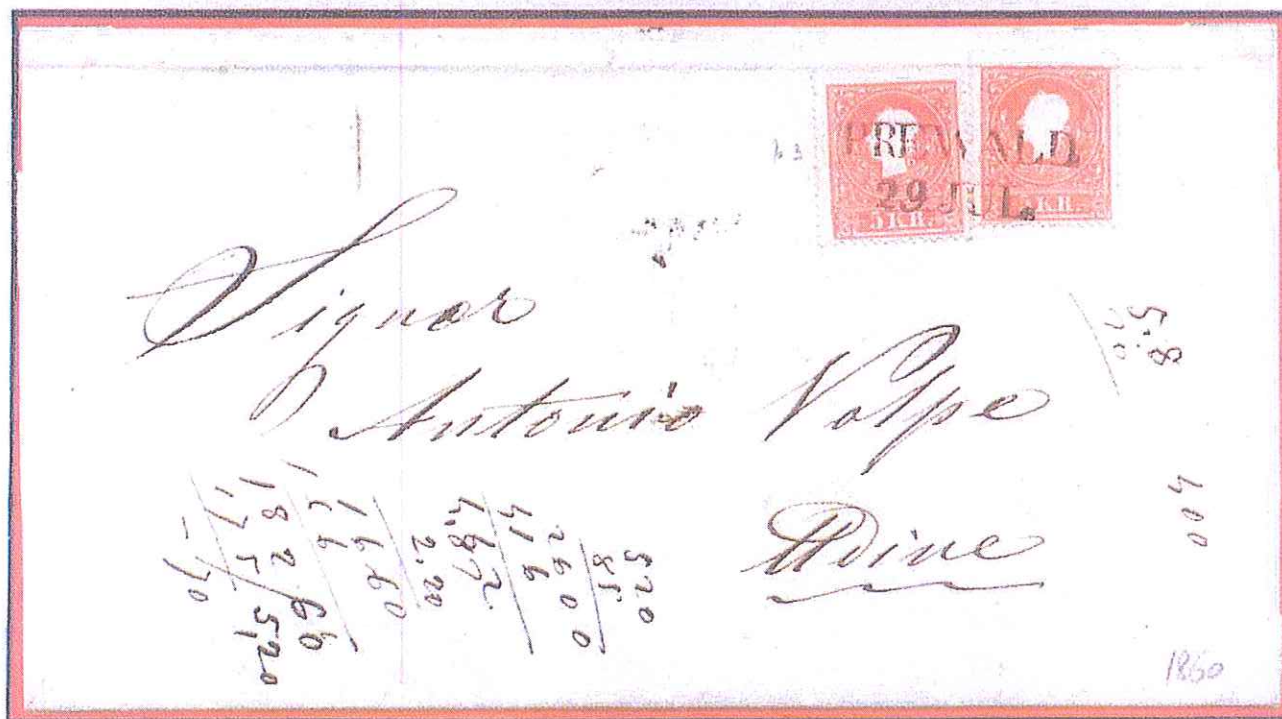 PREWALD.
29 JUL.
5 KR.
KR.
Signor
Antonio Volpe
Udine
400
520
85
2600
416
2.20
1660
166
1826
5,20
1860